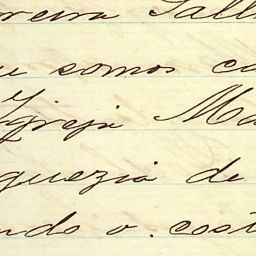 reira Sall
somos ca
Igreja Ma
guezia de
ndo o. cost